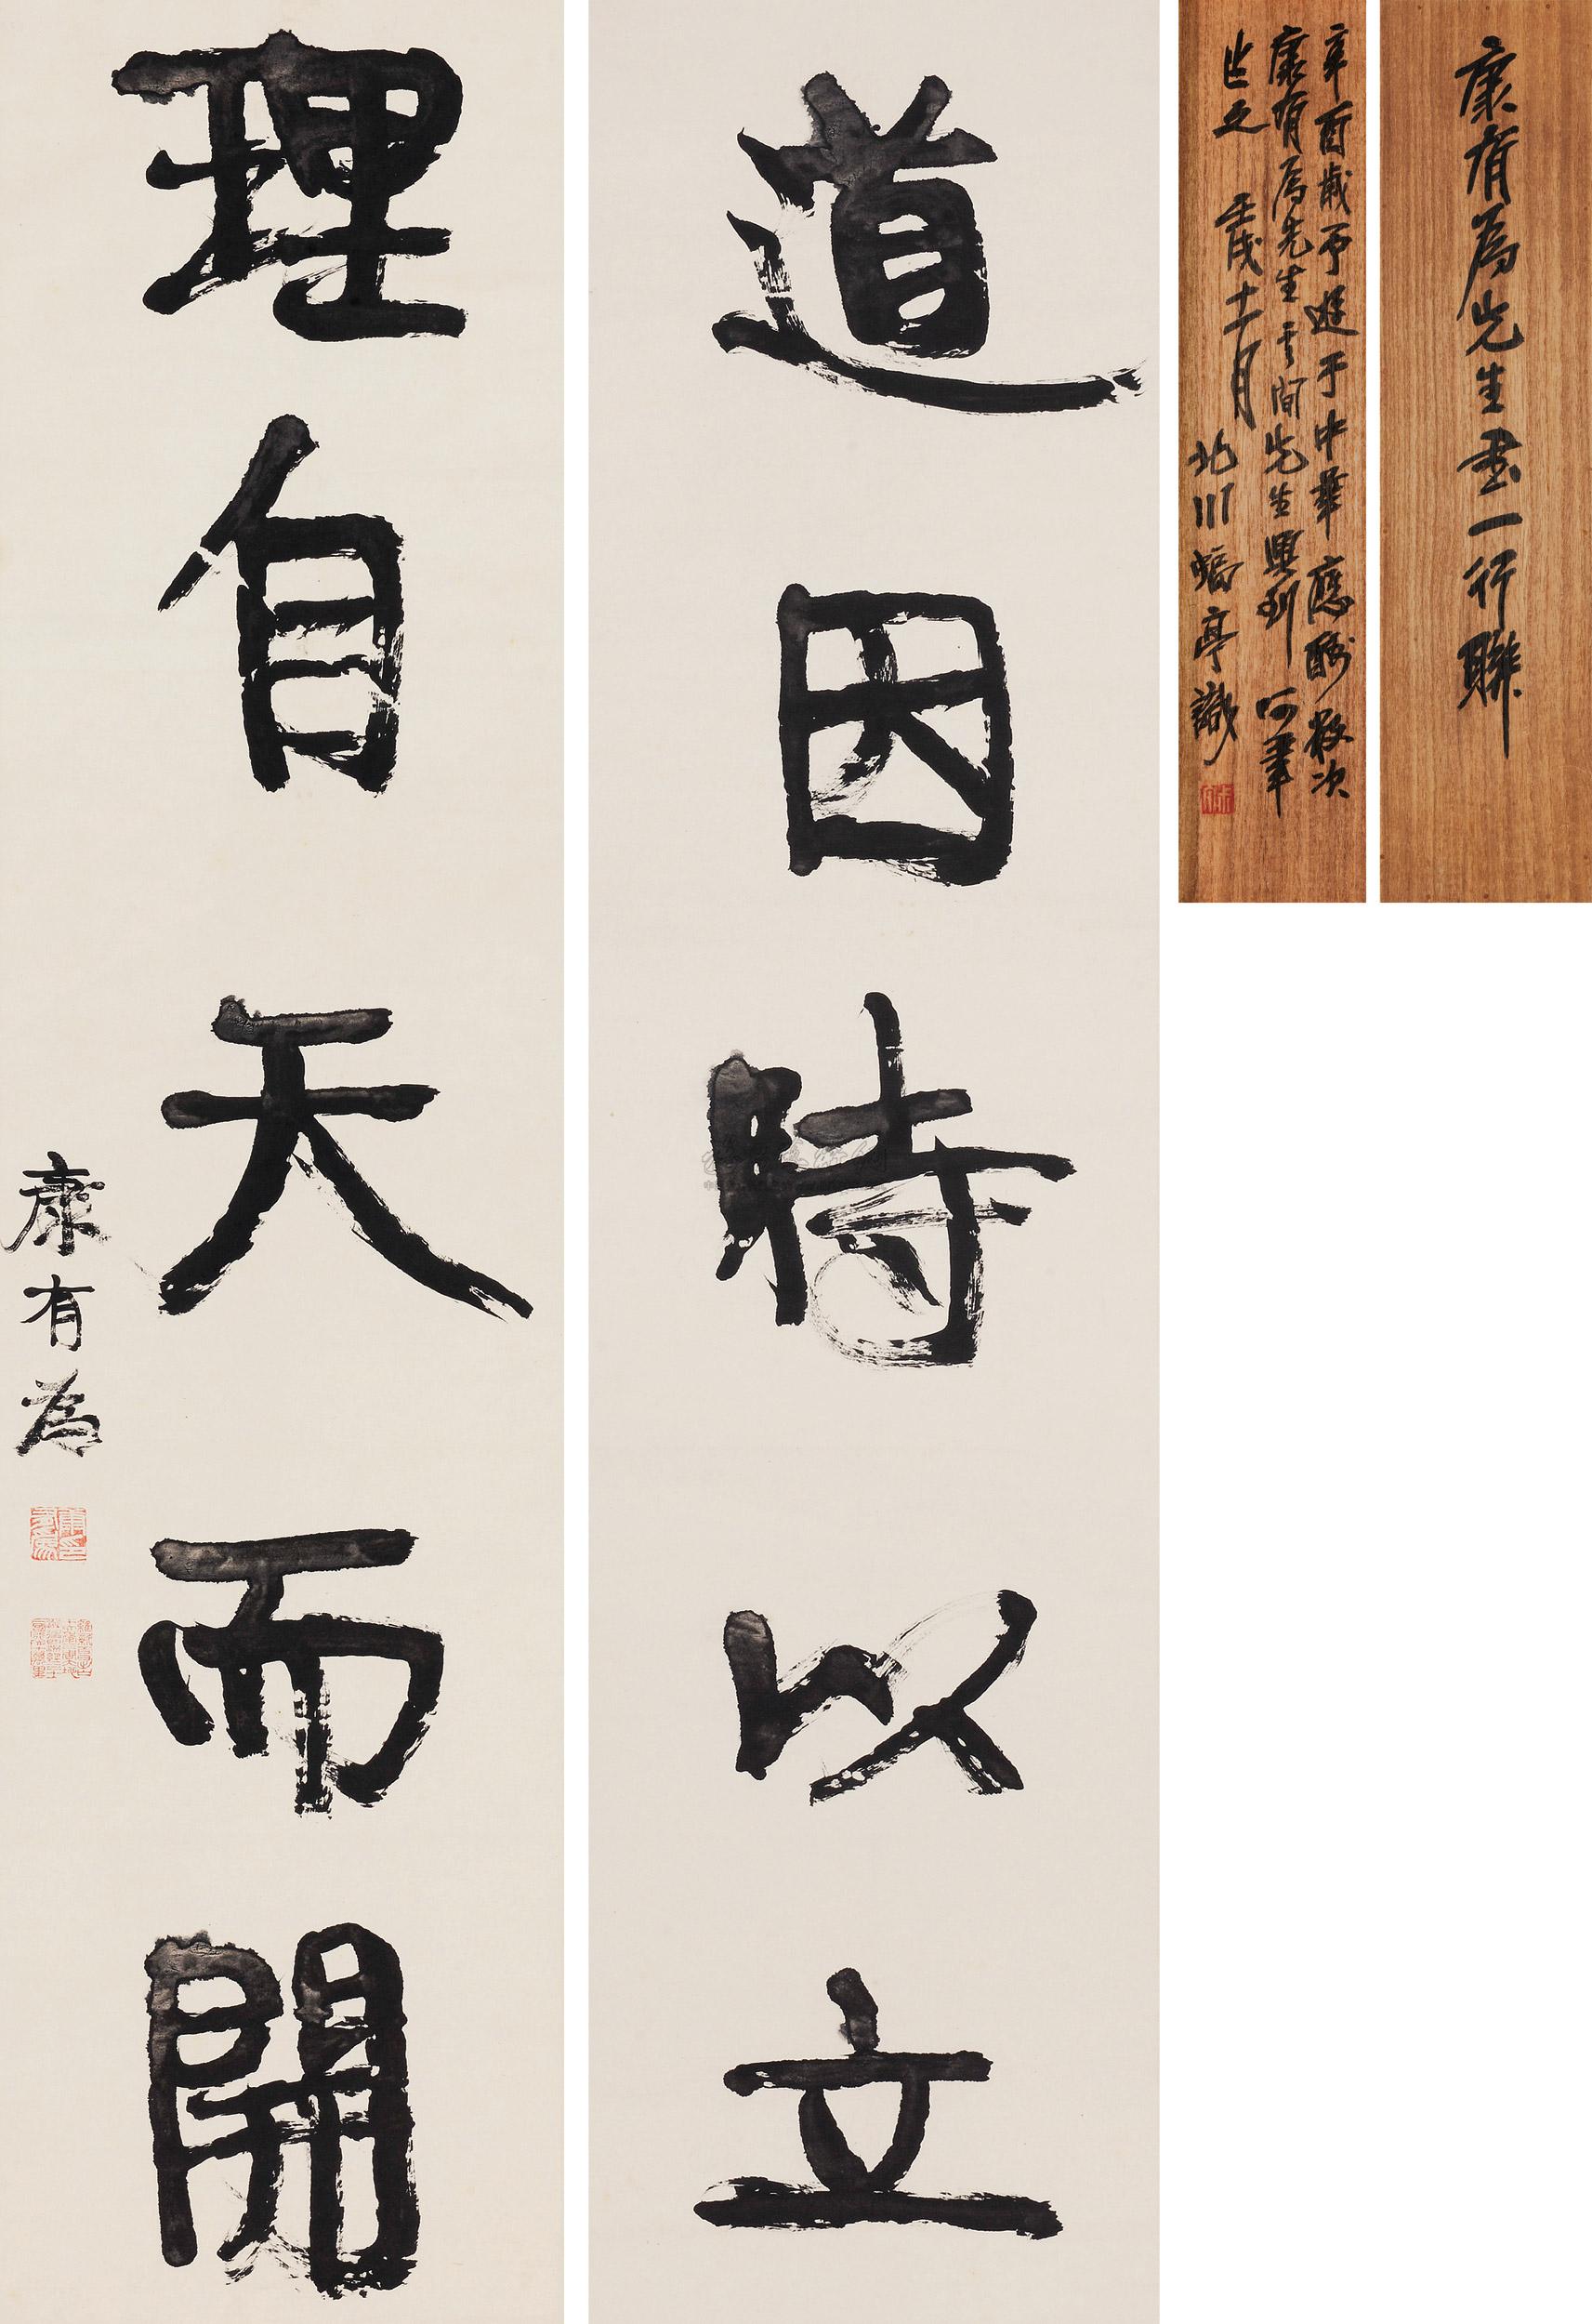 康有為先生書一行聯
辛酉歲予遊于中華應酬數次
康有為先生雲間先生興到一河筆
北川蝠亭識
壬戌十一月
道因時以立
理自天而開
康有為